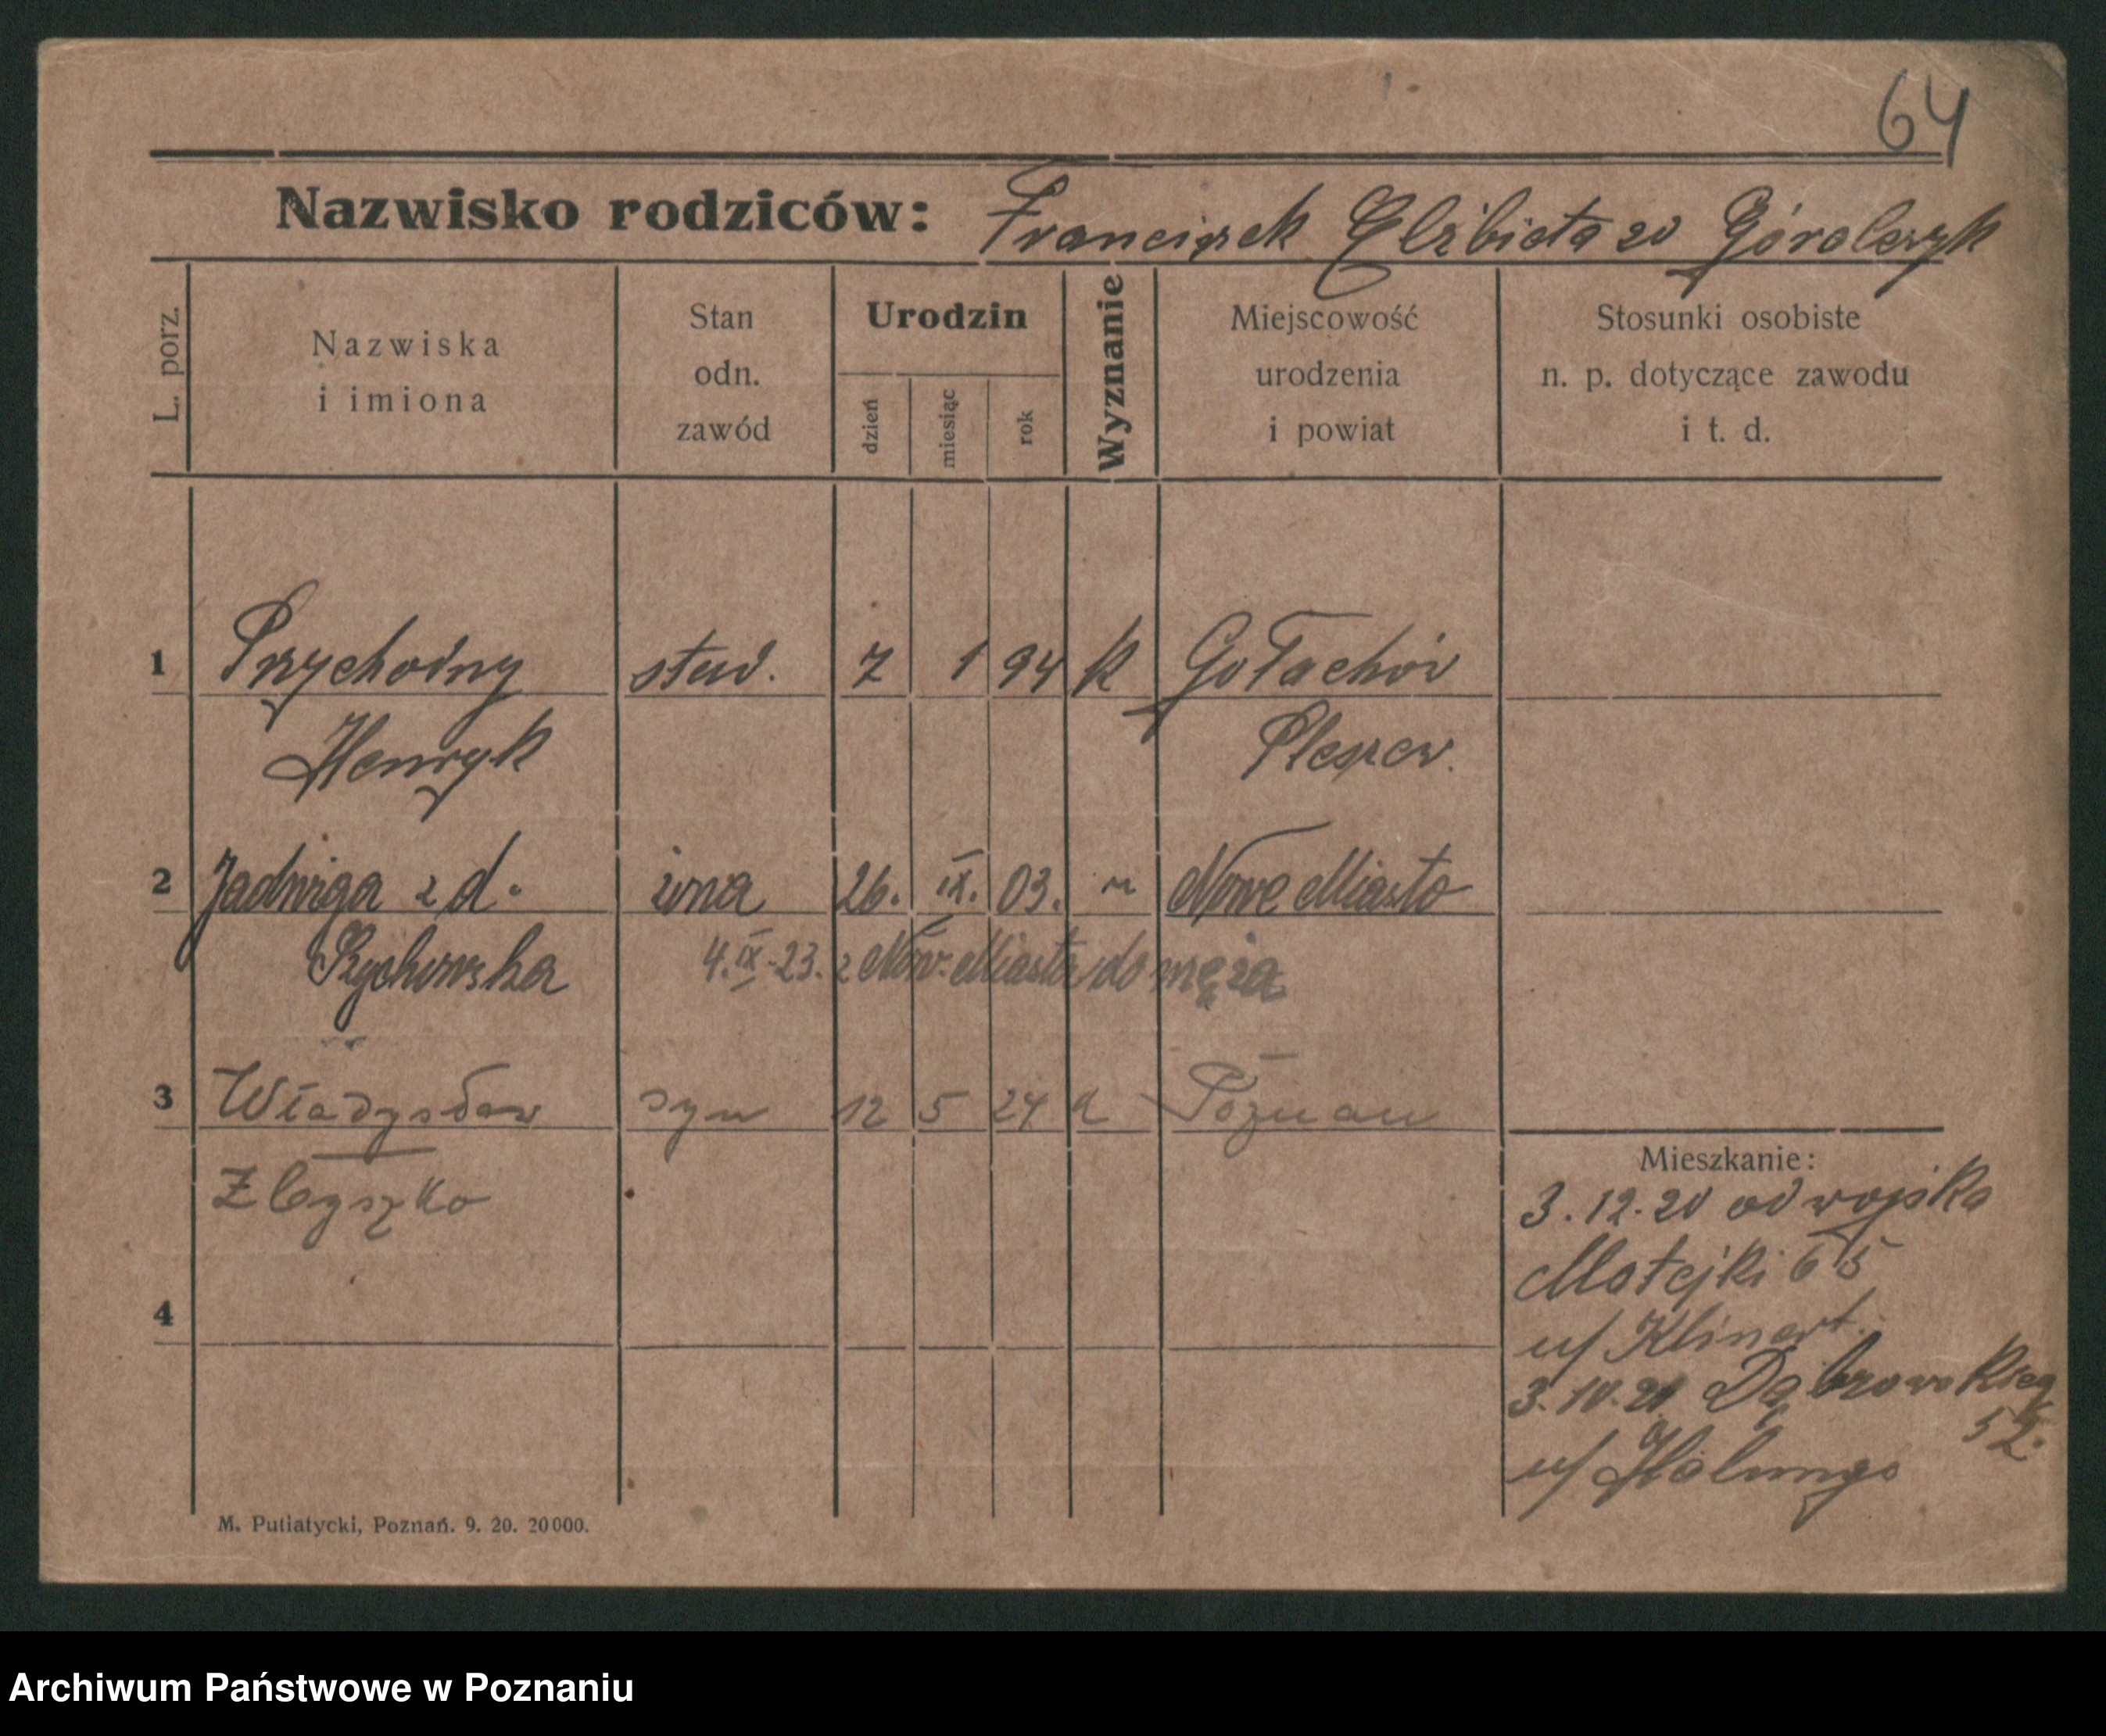 64
Nazwisko rodziców: Franciszek Elżbieta zd Góralczyk
L. porz.
Nazwiska
i imiona
Stan
odn.
zawód
Urodzin
dzień
miesiąc
rok
Wyznanie
Miejscowość
urodzenia
i powiat
Stosunki osobiste
n. p. dotyczące zawodu
i t. d.
1 Przychodny stud. 7 1 94 k Gołuchów
Henryk Pleszew.
2 Jadwiga z d. żona 26. IX. 03. " Nowe Miasto
4.IX.23. z Now. Miasta do męża
3 Władysław syn 12 5 24 k Poznań
Zbyszko
4
Mieszkanie:
3.12.20 od wojska
Matejki 65
u/ Klinert.
Dąbrowskieg
52.
u/
M. Putiatycki, Poznań. 9. 20. 20000.
Archiwum Państwowe w Poznaniu